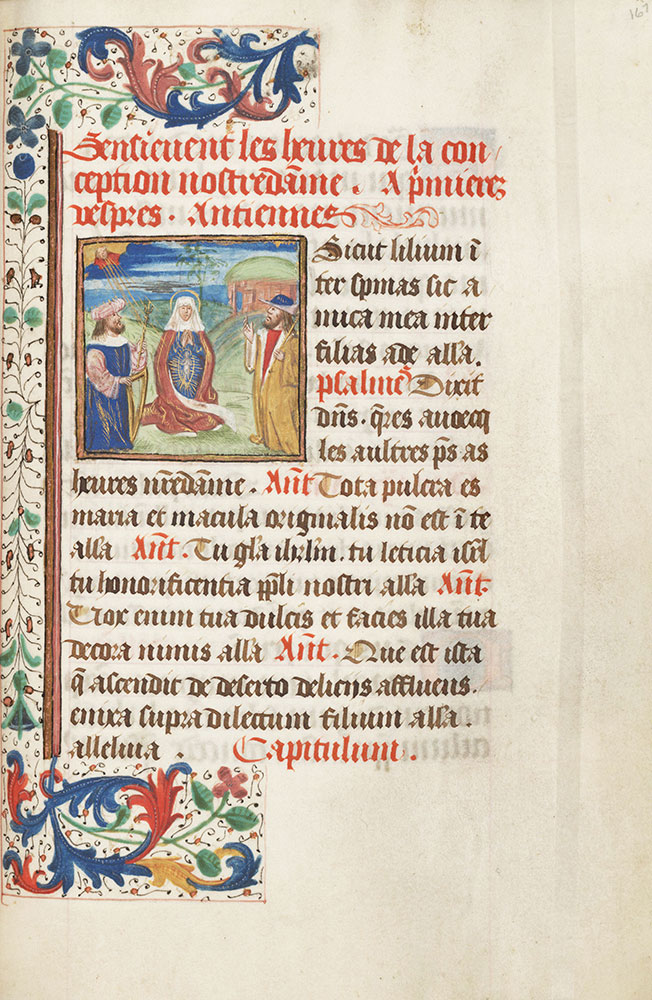 167
Sensieuent les heures de la con
ception nostredame . A pmieres
vespres . Antiennes
Sicut lilium ī
ter spinas sic a
mica mea inter
filias ade alla.
psalme Dixit
dns. qres auoecq
les aultres ps as
heures nredame . Ant Tota pulcra es
maria et macula originalis nō est ī te
alla Ant . Tu gla ihrlm . tu leticia isrl
tu honorificentia ppli nostri alla Ant.
Vox enim tua dulcis et facies illa tua
decora nimis alla Ant . Que est ista
q̄ ascendit de deserto delicijs affluens .
enixa supra dilectum filium alla .
alleluia . Capitulum .